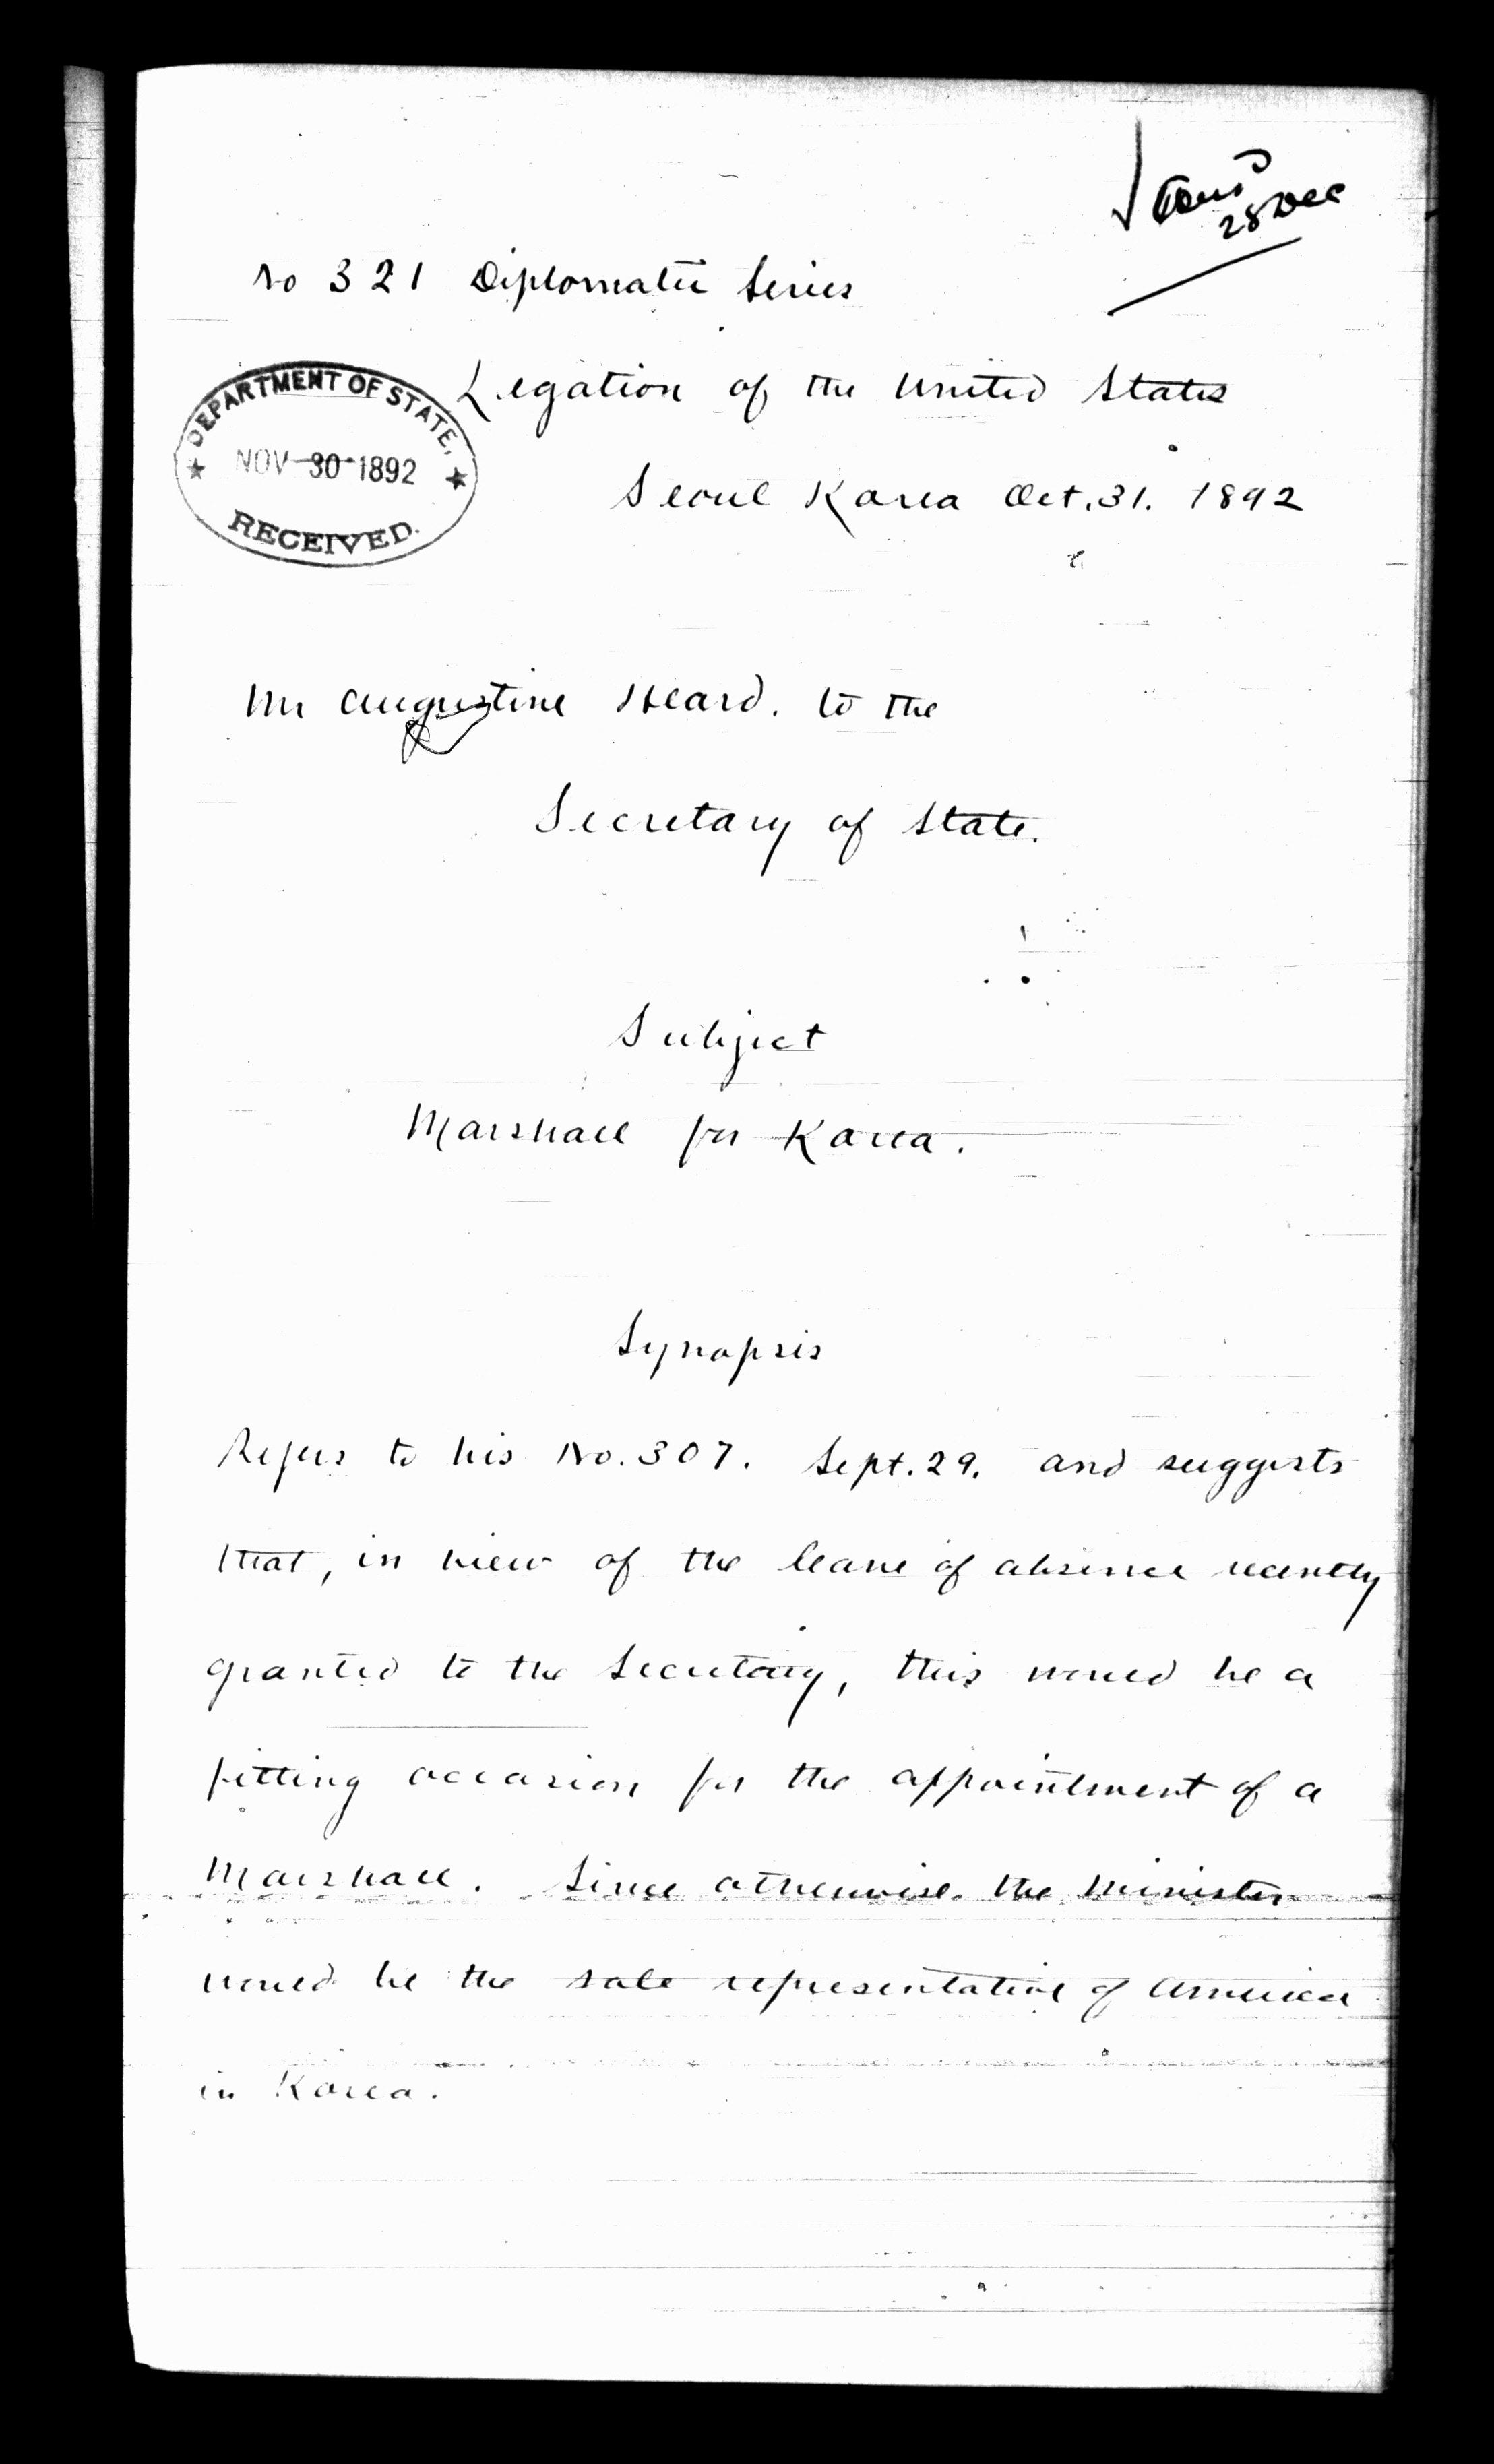 28 Dec
No 321 Diplomatic Series
DEPARTMENT OF STATE,
NOV 30 1892
RECEIVED.
Legation of the United States
Seoul Korea Oct. 31. 1892
Mr Augustine Heard. to the
Secretary of State.
Subject
Marshall for Korea.
Synopsis
Refers to his No. 307. Sept. 29. and suggests
that, in view of the leave of absence recently
granted to the Secretary, this would be a
fitting occasion for the appointment of a
Marshall. Since otherwise the Minister
would be the sole representative of America
in Korea.